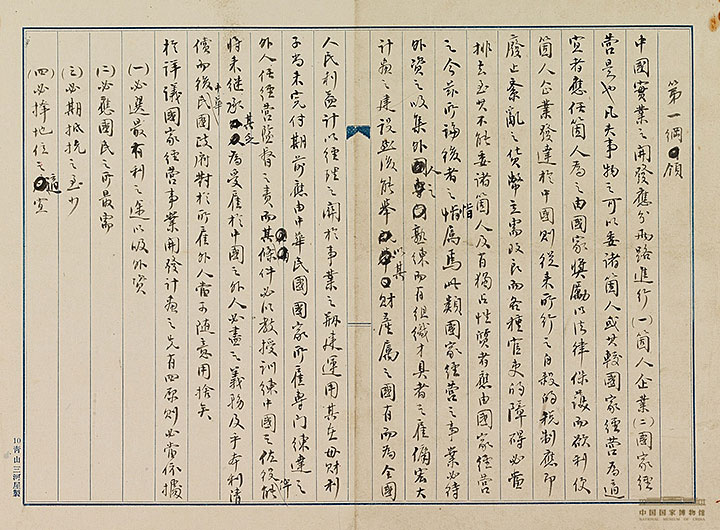 第一綱領
中國實業之開發應分兩路進行(一)箇人企業(二)國家經
營是也凡夫事物之可以委諸箇人或其較國家經營為適
宜者應任箇人為之由國家獎勵以法律保護而欲利便
箇人企業發達於中國則從來所行之自殺的稅制應即
廢止紊亂之貨幣立需改良而各種官吏的障碍必當
排去至其不能委諸箇人及有獨占性質者應由國家經營
之今茲所論後者之屬焉此類國家經營之事業必待
外資之吸集外人之熟練而有組織才具者之雇傭宏大
計畫之建設然後能舉以其財產屬之國有而為全國
人民利益計以經理之關於事業之剏建運用其在母財利
子尚未完付期前應由中華民國國家所雇專門練達之
外人任經營監督之責而其條件必以教授訓練中國之佐役俾能
將來繼承其乏為受雇於中國之外人必盡之義務及乎本利清
償而後中華民國政府對於所雇外人當可隨意用捨矣
於詳議國家經營事業開發計畫之先有四原則必當依據
(一)必選最有利之途以吸外資
(二)必應國民之所最需
(三)必期抵抗之至少
(四)必擇地位之適宜
10青山三河屋製
中国国家博物馆
NATIONAL MUSEUM OF CHINA